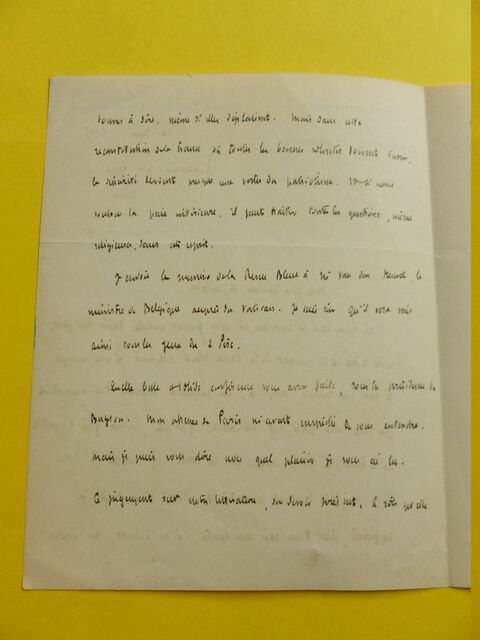 bonnes à dire, même si elles déplaisent. Mais dans cette
reconstitution de la France où toutes les bonnes volontés doivent s'unir,
la sincérité devient presque une vertu du patriotisme. Et si nous
voulons la paix intérieure, il faut traiter toutes les questions, même
religieuses, dans cet esprit.
J'envoie le numéro de la Revue Bleue à M. van den Heuvel, le
ministre de Belgique auprès du Vatican. Je suis sûr qu'il sera mis
ainsi sous les yeux du S. Père.
Quelle belle et solide conférence vous avez faite, sous la présidence de
Buisson. Mon absence de Paris m'avait empêché de vous entendre.
Mais je puis vous dire avec quel plaisir je vous ai lu.
Ce jugement sur notre législation, son dernier présent, le rôle qu'elle